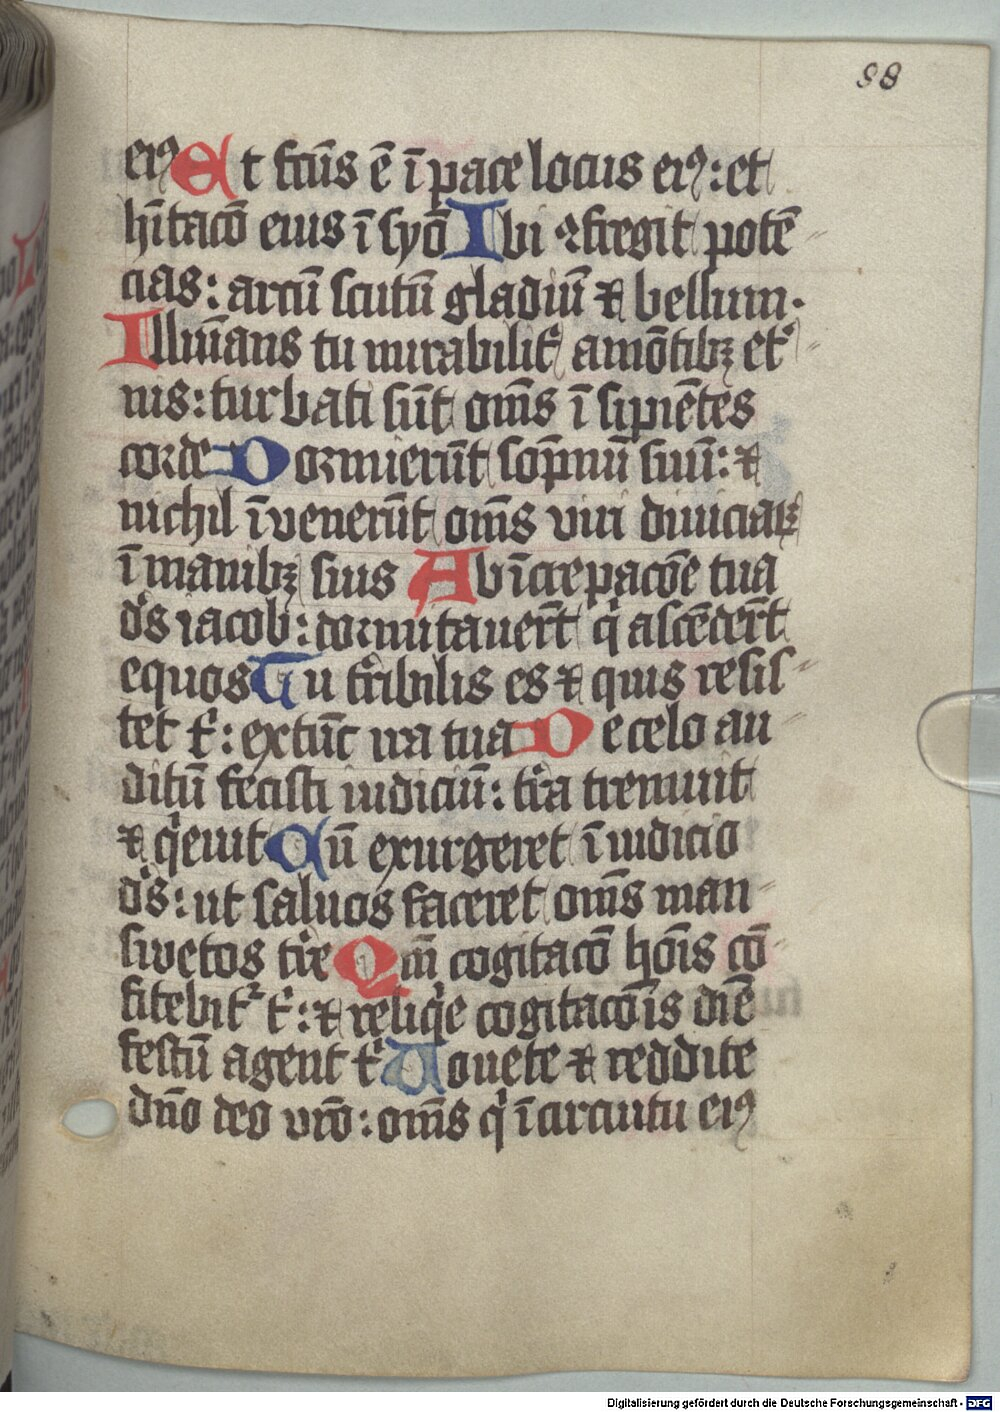 98
eiꝰ Et fcūs ē ī pace locus eiꝰ: et
hītacō eius ī syō Ibi ꝯfregit potē
cias: arcū scutū gladiū ⁊ bellum.
Illūīans tu mirabilit᷑ amōtibꝫ et᷑
nis: turbati sūt om̄s īsipiētes
corde Dormierūt sop̄nū suū: ⁊
nichil īvenerūt om̄s viri diviciaꝝ
ī manibꝫ suis Ab īcrepacōe tua
ds̄ iacob: dormitauer̄t qͥ ascēder̄t
equos Tu tͬribilis es ⁊ quis resis
tet tͥ: extūc ira tua De celo au
ditū fecisti iudiciū: tͬra tremuit
⁊ qͥeuit Cū exurgeret ī iudicio
ds̄: ut saluos faceret om̄s man
suetos tͬre Qm̄ cogitacō hoīs cō
fitebit᷑ tͥ: ⁊ reliqͥe cogitacōīs diē
festū agent tͥ Vouete ⁊ reddite
dn̄o deo vr̄o: om̄s qͥ ī circuitu eiꝰ
Digitalisierung gefördert durch die Deutsche Forschungsgemeinschaft - DFG